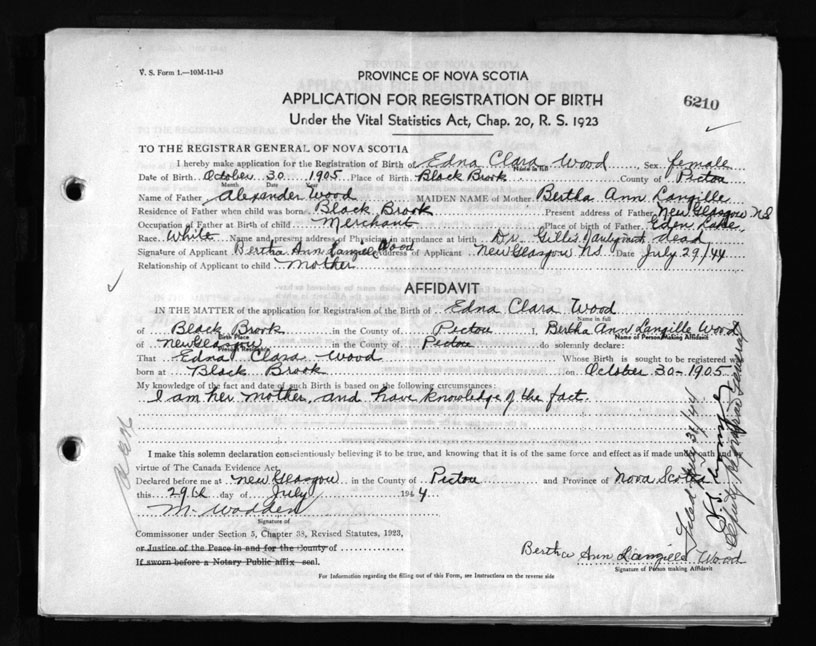 V. S. Form 1.—10M-11-43
PROVINCE OF NOVA SCOTIA
APPLICATION FOR REGISTRATION OF BIRTH
6210
Under the Vital Statistics Act, Chap. 20, R. S. 1923
TO THE REGISTRAR GENERAL OF NOVA SCOTIA
I hereby make application for the Registration of Birth of Edna Clara Wood, Sex female
Name in full
Date of Birth October 30 1905 Place of Birth Black Brook County of Pictou
Month Date Year
Name of Father Alexander Wood MAIDEN NAME of Mother Bertha Ann Langille
Residence of Father when child was born Black Brook Present address of Father New Glasgow N.S
Occupation of Father at Birth of child Merchant Place of birth of Father Eden Lake
Race White Name and present address of Physician in attendance at birth Dr. Gillis dead
Signature of Applicant Bertha Ann Langille Wood Address of Applicant New Glasgow N.S. Date July 29/44
Relationship of Applicant to child Mother
AFFIDAVIT
IN THE MATTER of the application for Registration of the Birth of Edna Clara Wood
Name in full
of Black Brook in the County of Pictou I, Bertha Ann Langille Wood
Birth Place Name of Person Making Affidavit
of New Glasgow in the County of Pictou do solemnly declare:
Present Residence
That Edna Clara Wood Whose Birth is sought to be registered was
born at Black Brook on October 30-1905
My knowledge of the fact and date of such Birth is based on the following circumstances:
I am her mother, and have knowledge of the fact.
I make this solemn declaration conscientiously believing it to be true, and knowing that it is of the same force and effect as if made under oath and by
virtue of The Canada Evidence Act.
Declared before me at New Glasgow in the County of Pictou and Province of Nova Scotia
this 29th day of July 1944
M. Wadden
Signature of
Commissioner under Section 5, Chapter 38, Revised Statutes, 1923,
or Justice of the Peace in and for the County of
If sworn before a Notary Public affix seal.
Bertha Ann Langille Wood
Signature of Person making Affidavit
For Information regarding the filling out of this Form, see Instructions on the reverse side
Filed July 31/44
Deputy Registrar General